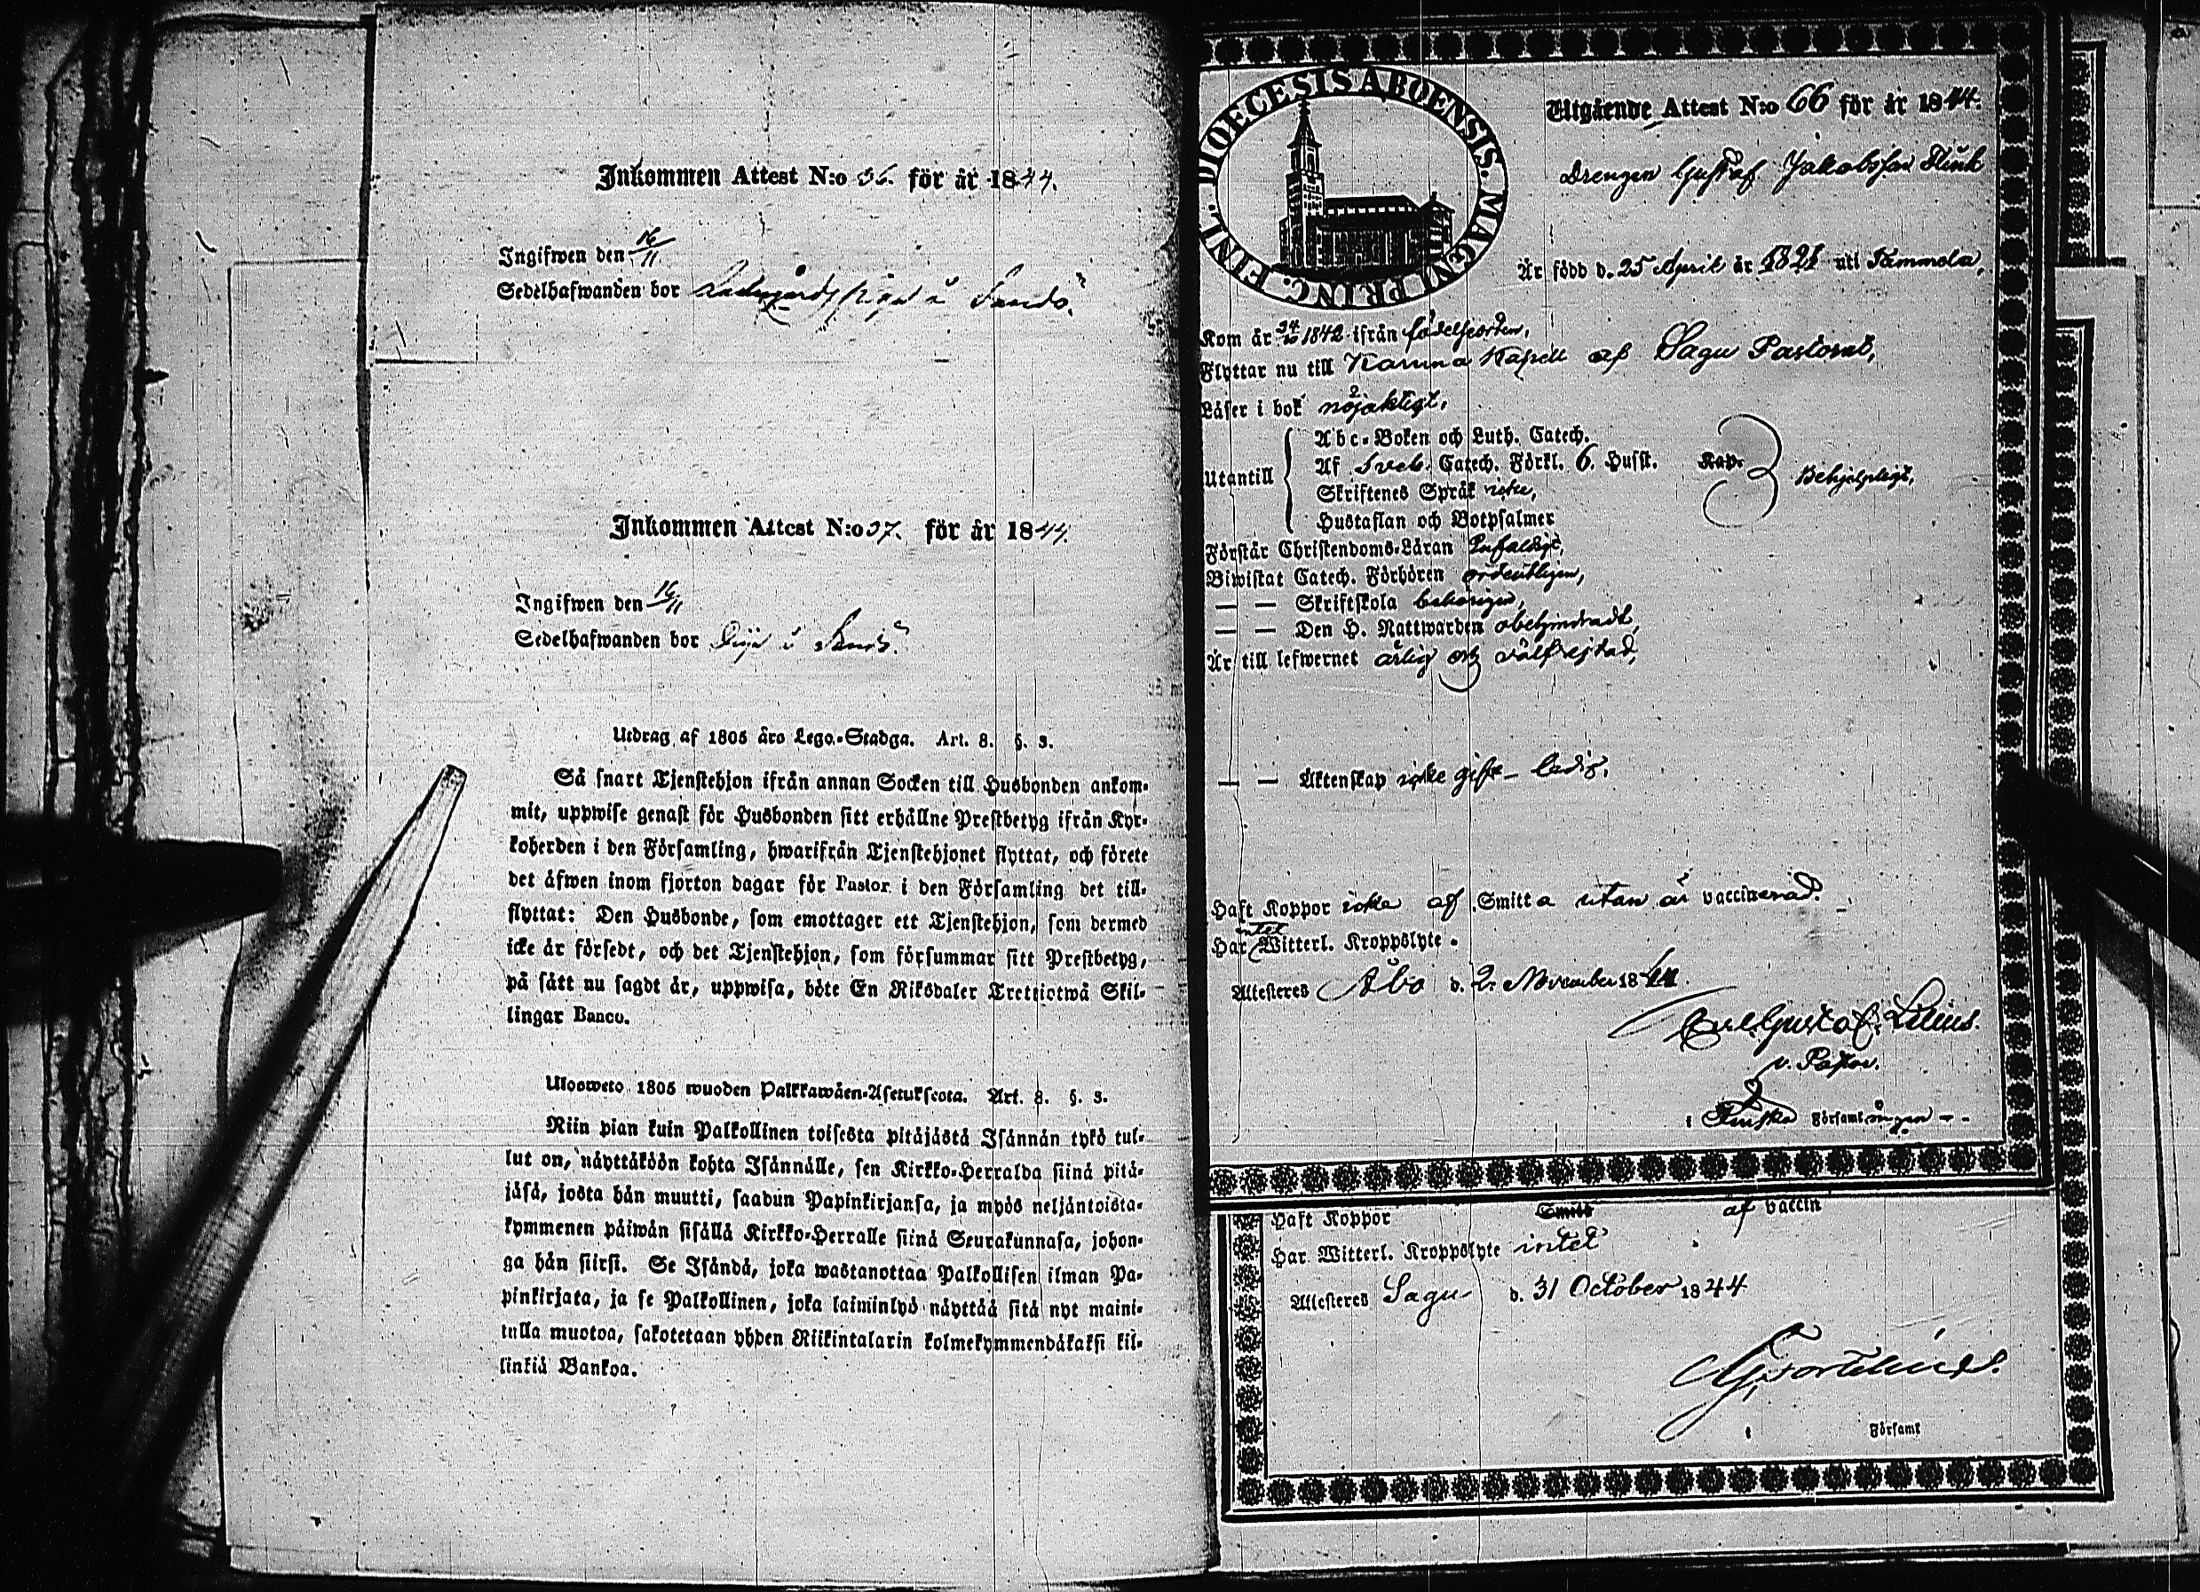 Inkommen Attest N:o 36. för år 1844.
Ingifwen den 16/11
Sedelhafwanden bor
Inkommen Attest N:o 37. för år 1844.
Ingifwen den 16/11
Sedelhafwanden bor
Utdrag af 1805 års Lego-Stadga. Art. 8. §. 3.
Så snart Tjenstehjon ifrån annan Socken till Husbonden ankom-
mit, uppwise genast för Husbonden sitt erhållne Prestbetyg ifrån Kyr-
koherden i den Församling, hwarifrån Tjenstehjonet flyttat, och förete
det äfwen inom fjorton dagar för Pastor i den Församling det till-
flyttat: Den Husbonde, som emottager ett Tjenstehjon, som dermed
icke är försedt, och det Tjenstehjon, som försummar sitt Prestbetyg,
på sätt nu sagdt är, uppwisa, böte En Riksdaler Trettiotwå Skil-
lingar Banco.
Ulosweto 1805 wuoden Palkkawäen-Asetuksesta. Art. 8. §. 3.
Niin pian kuin Palkollinen toisesta pitäjästä Isännän tykö tul-
lut on, näyttäköön kohta Isännälle, sen Kirkko-Herralda siinä pitä-
jäsä, josta hän muutti, saadun Papinkirjansa, ja myös neljäntoista-
kymmenen päiwän sisällä Kirkko-Herralle siinä Seurakunnasa, johon-
ga hän siirsi. Se Isändä, joka wastanottaa Palkollisen ilman Pa-
pinkirjata, ja se Palkollinen, joka laiminlyö näyttää sitä nyt maini-
tulla muotoa, sakotetaan yhden Riikintalarin kolmekymmendäkaksi kil-
linkiä Bankoa.
DIOECESIS ABOENSIS. MAGNI PRINC. FINL.
Utgående Attest N:o 66 för år 1844.
Drengen Gustaf Jakobsson
Är född d. 25 April år 1821 uti Tammela,
Kom år 1842 ifrån födelseorten,
Flyttar nu till Karuna Kapell af Sagu Pastorat,
Läser i bok nöjaktigt,
Utantill
Abc-Boken och Luth. Catech.
Af Sveb. Catech. Förkl. 6. Husst. Kap.
Skriftenes Språk icke,
Hustaflan och Botpsalmer
Behjelpligt,
Förstår Christendoms-Läran Enfaldigt,
Biwistat Catech. Förhören ordentligen,
— — Skriftskola behörigen,
— — Den H. Nattwarden obehindradt,
Är till lefwernet ärlig och välfrejdad,
— — Äktenskap icke gift – ledig.
Haft Koppor icke af Smitta utan är vaccinerad.
Har intet Witterl. Kroppslyte.
Attesteres Åbo d. 2. November 1844.
Carl Gustaf
v. Pastor.
i Finska Församlingen --
Haft Koppor Smitt af vaccin
Har Witterl. Kroppslyte intet
Attesteres Sagu d. 31 October 1844
i Församl